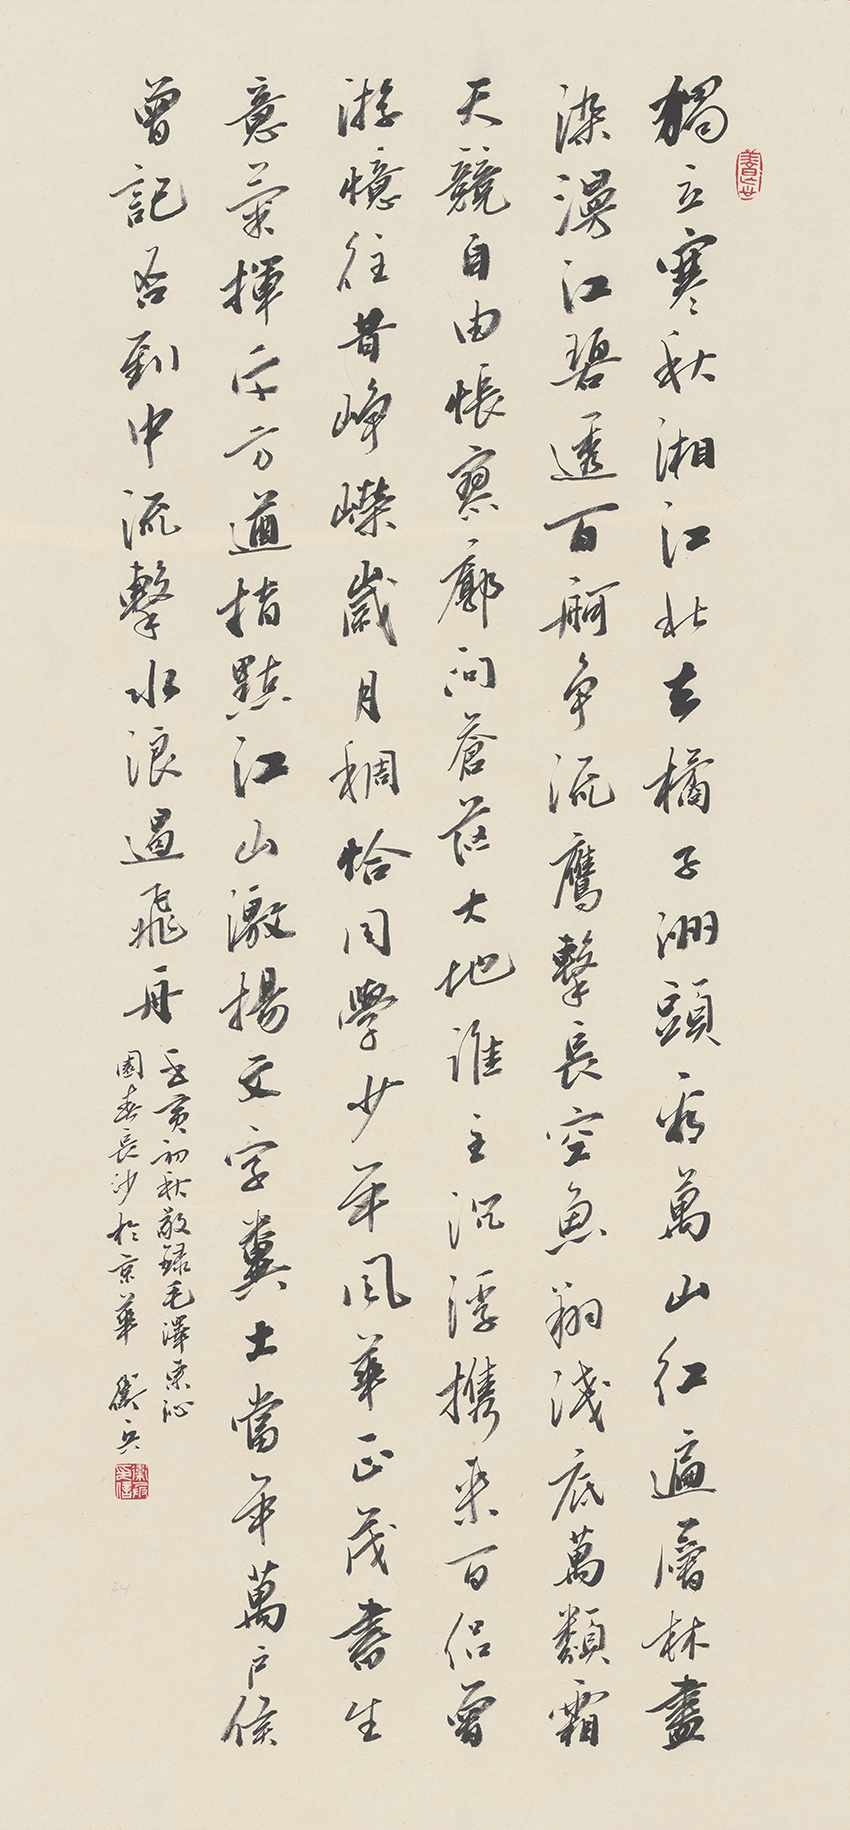 獨立寒秋湘江北去橘子洲頭看萬山紅遍層林盡
染漫江碧透百舸争流鷹擊長空魚翔淺底萬類霜
天競自由悵寥廓問蒼茫大地誰主沉浮携來百侣曾
游憶往昔崢嶸歲月稠恰同學少年風華正茂書生
意氣揮斥方遒指點江山激揚文字糞土當年萬户侯
曾記否到中流擊水浪遏飛舟
壬寅初秋敬録毛澤東沁
園春長沙於京華 衛兵
24